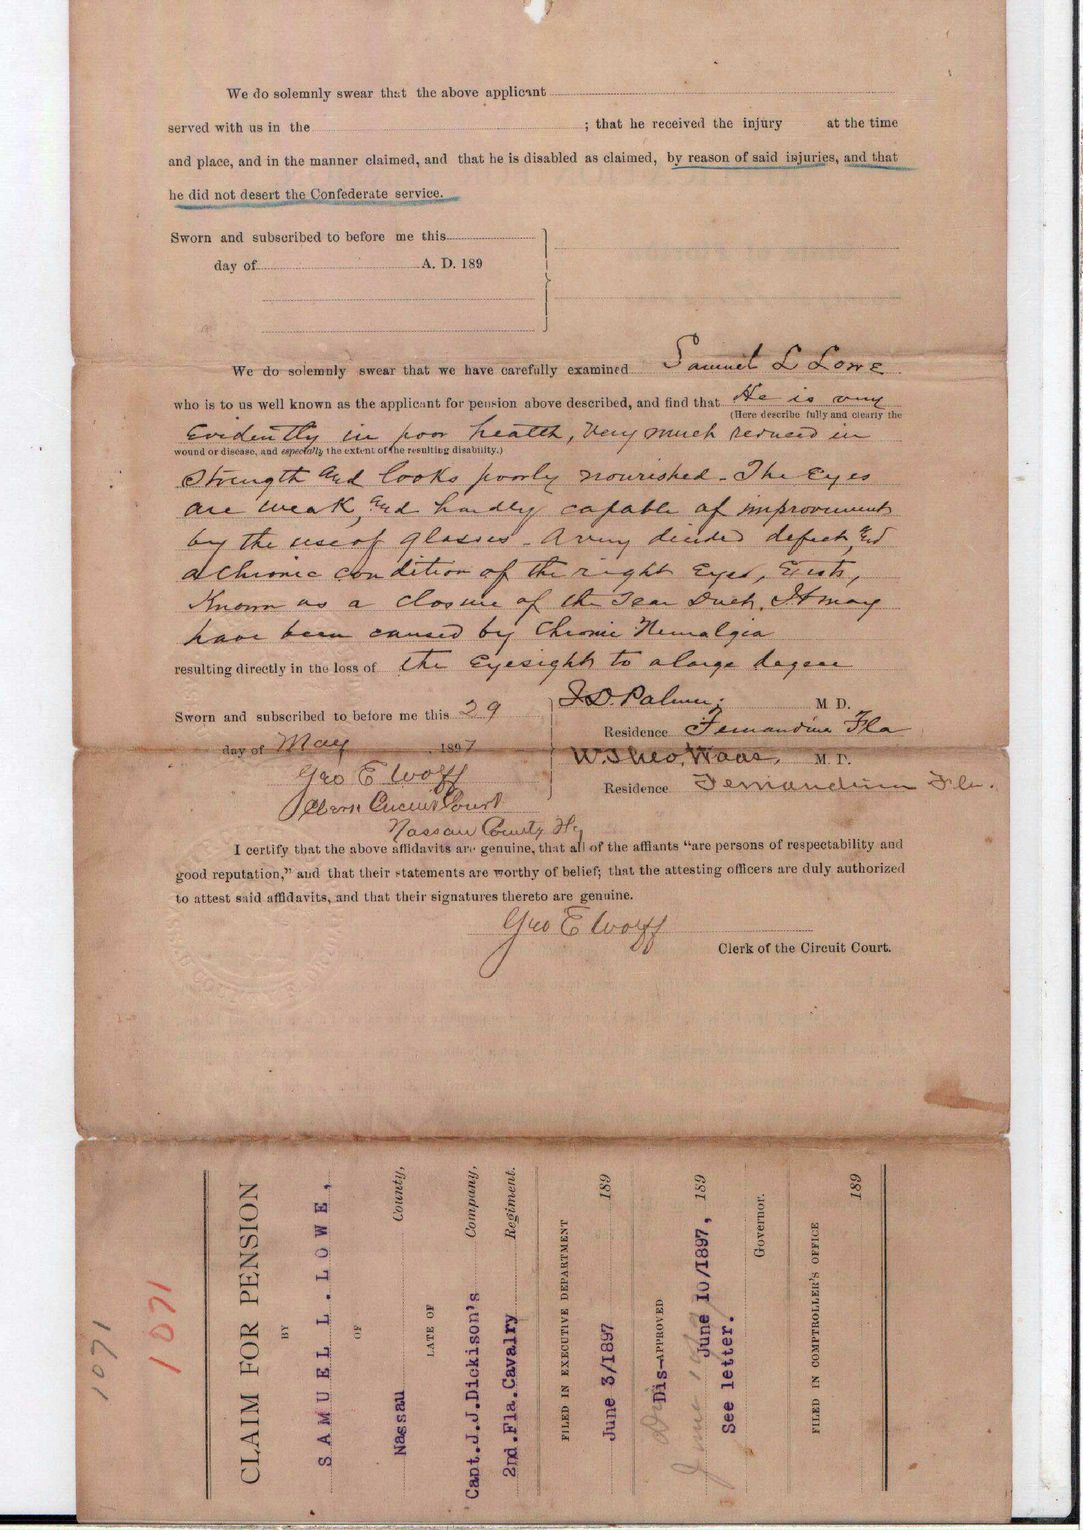 We do solemnly swear that the above applicant
served with us in the ; that he received the injury at the time
and place, and in the manner claimed, and that he is disabled as claimed, by reason of said injuries, and that
he did not desert the Confederate service.
Sworn and subscribed to before me this
day of A. D. 189
We do solemnly swear that we have carefully examined Samuel L Lowe
who is to us well known as the applicant for pension above described, and find that He is very
(Here describe fully and clearly the
Evidently in poor health, very much reduced in
wound or disease, and especially the extent of the resulting disability.)
Strength and looks poorly nourished - The Eyes
are weak, and hardly capable of improvement
by the use of glasses - A very decided defect, and
a Chronic condition of the right Eyes, Exists,
Known as a closure of the Tear Duct. It may
have been caused by Chronic Neuralgia
resulting directly in the loss of the Eyesight to a large degree
Sworn and subscribed to before me this 29
day of May , 1897
Geo E Wolff
Clerk Circuit Court
Nassau County
J. D. Palmer M D.
Residence Fernandina Fla
W. Theo. Waas, M. D.
Residence Fernandina Fla.
I certify that the above affidavits are genuine, that all of the affiants "are persons of respectability and
good reputation," and that their statements are worthy of belief; that the attesting officers are duly authorized
to attest said affidavits, and that their signatures thereto are genuine.
Geo E Wolff
Clerk of the Circuit Court.
1071
1071
CLAIM FOR PENSION
BY
SAMUEL L. LOWE,
OF
Nassau County,
LATE OF
Capt. J.J. Dickison's Company,
2nd. Fla. Cavalry Regiment.
FILED IN EXECUTIVE DEPARTMENT
June 3/1897 189
Dis-APPROVED
June 10/1897, 189
See letter.
Governor.
FILED IN COMPTROLLER'S OFFICE
189